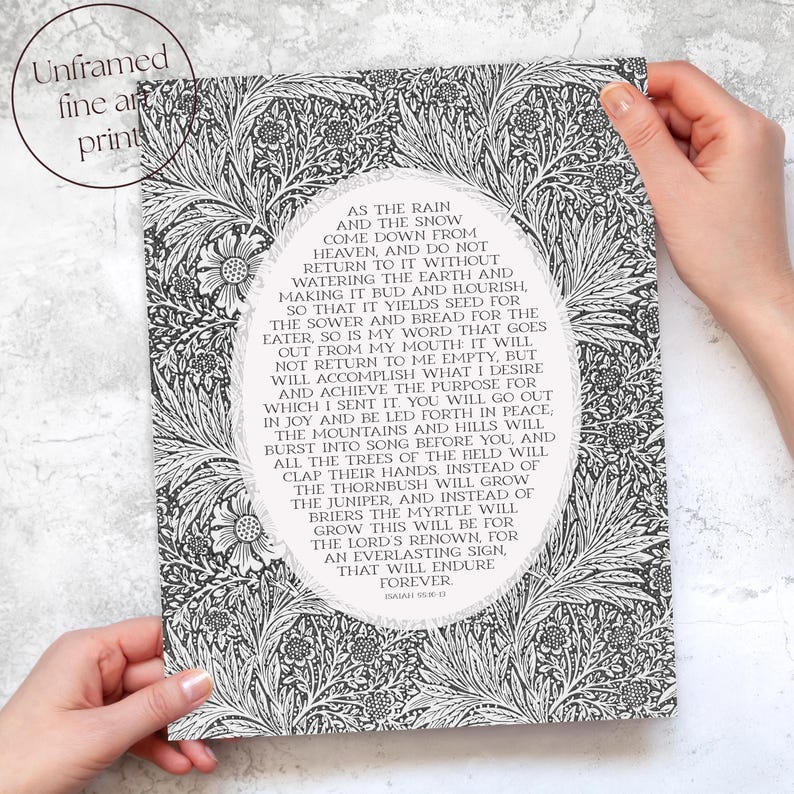 Unframed
fine art
print
AS THE RAIN
AND THE SNOW
COME DOWN FROM
HEAVEN, AND DO NOT
RETURN TO IT WITHOUT
WATERING THE EARTH AND
MAKING IT BUD AND FLOURISH,
SO THAT IT YIELDS SEED FOR
THE SOWER AND BREAD FOR THE
EATER, SO IS MY WORD THAT GOES
OUT FROM MY MOUTH: IT WILL
NOT RETURN TO ME EMPTY, BUT
WILL ACCOMPLISH WHAT I DESIRE
AND ACHIEVE THE PURPOSE FOR
WHICH I SENT IT. YOU WILL GO OUT
IN JOY AND BE LED FORTH IN PEACE;
THE MOUNTAINS AND HILLS WILL
BURST INTO SONG BEFORE YOU, AND
ALL THE TREES OF THE FIELD WILL
CLAP THEIR HANDS. INSTEAD OF
THE THORNBUSH WILL GROW
THE JUNIPER, AND INSTEAD OF
BRIERS THE MYRTLE WILL
GROW THIS WILL BE FOR
THE LORD'S RENOWN, FOR
AN EVERLASTING SIGN,
THAT WILL ENDURE
FOREVER.
ISAIAH 55:10-13